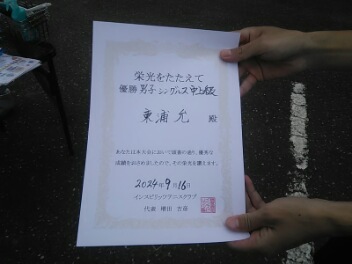 栄光をたたえて
優勝 男子シングルス 中上級
東浦 允 殿
あなたは本大会において頭書の通り、優秀な
成績をおさめましたので、その栄光を讃えます。
2024年9月16日
インスピリッツテニスクラブ
代表